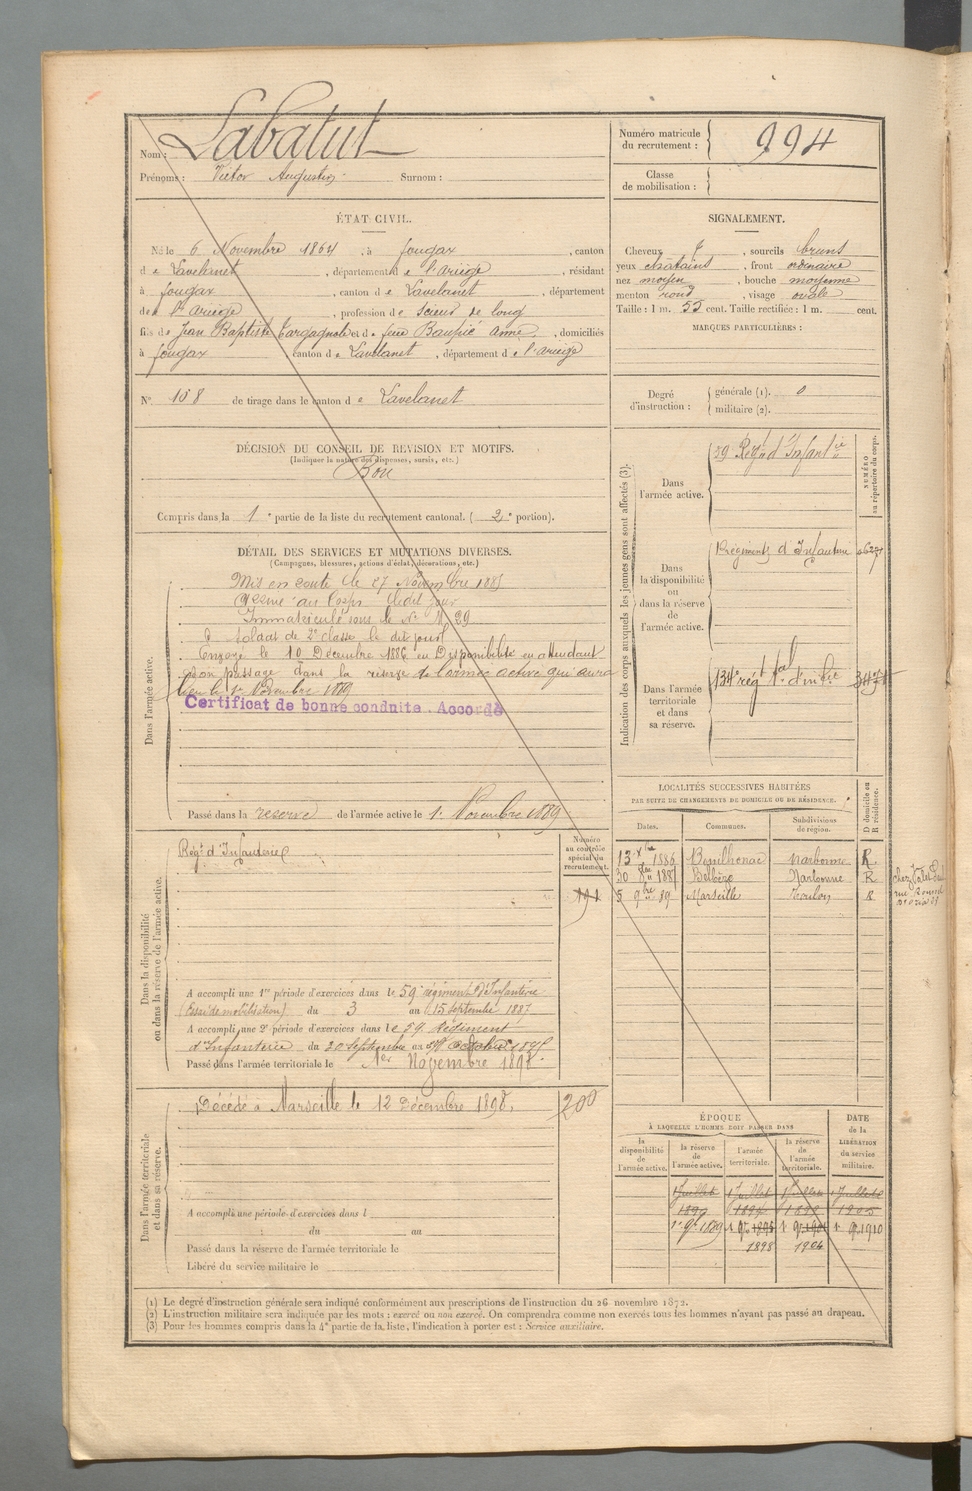 Nom : Labatut
Prénoms : Victor Augustin Surnom :
Numéro matricule du recrutement : 994
Classe de mobilisation :
ÉTAT CIVIL.
Né le 6 Novembre 1864, à fougax, canton
de Lavelanet, département de l'ariège, résidant
à fougax, canton de Lavelanet, département
de l'ariège, profession de Scieur de long
fils de Jean Baptiste et de feue Anne, domiciliés
à fougax canton de Lavelanet, département de l'ariège
N° 108 de tirage dans le canton de Lavelanet
SIGNALEMENT.
Cheveux, sourcils bruns
yeux chatains, front ordinaire
nez moyen, bouche moyenne
menton rond, visage ovale
Taille : 1 m. 55 cent. Taille rectifiée : 1 m. cent.
MARQUES PARTICULIÈRES :
Degré d'instruction : générale (1). 0
militaire (2).
DÉCISION DU CONSEIL DE REVISION ET MOTIFS.
(Indiquer la nature des dispenses, sursis, etc.)
Bon
Compris dans la 1e partie de la liste du recrutement cantonal. ( 2e portion).
DÉTAIL DES SERVICES ET MUTATIONS DIVERSES.
(Campagnes, blessures, actions d'éclat, décorations, etc.)
Dans l'armée active.
Mis en route le 27 Novembre 1885
au Corps ledit jour
Immatriculé sous le N°
Soldat de 2e classe le dit jour
Envoyé le 10 Décembre 1886 en Disponibilité en attendant
son passage dans la réserve de l'armée active qui aura
lieu le 1er Novembre 1889
Certificat de bonne conduite. Accordé
Passé dans la reserve de l'armée active le 1er Novembre 1889
Indication des corps auxquels les jeunes gens sont affectés (3).
NUMÉRO au répertoire du corps.
Dans l'armée active.
59 Régt d'Infantie
Dans la disponibilité ou dans la réserve de l'armée active.
Régiment d'Infanterie
Dans l'armée territoriale et dans sa réserve.
134e régt tal d'infie
LOCALITÉS SUCCESSIVES HABITÉES
PAR SUITE DE CHANGEMENTS DE DOMICILE OU DE RÉSIDENCE.
D domicile ou R résidence.
Dates. Communes. Subdivisions de région.
13 Xbre 1886 Narbonne R
30 1887 Narbonne R
5 9bre 89 Marseille Toulon R
Dans la disponibilité ou dans la réserve de l'armée active.
Numéro au contrôle spécial du recrutement.
Régt d'Infanterie
A accompli une 1re période d'exercices dans le 59e régiment d'Infanterie
(Essai de mobilisation) du 3 au 15 septembre 1887
A accompli une 2e période d'exercices dans le 59 Régiment
d'Infanterie du 20 septembre au
Passé dans l'armée territoriale le 1er Novembre 1898
Dans l'armée territoriale et dans sa réserve.
Décédé à Marseille le 12 Décembre 1898.
200
A accompli une période d'exercices dans l
du au
Passé dans la réserve de l'armée territoriale le
Libéré du service militaire le
ÉPOQUE
À LAQUELLE L'HOMME DOIT PASSER DANS
DATE de la LIBÉRATION du service militaire.
la disponibilité de l'armée active. la réserve de l'armée active. l'armée territoriale. la réserve de l'armée territoriale.
1 Juillet 1 Juillet 1 Juillet 1 Juillet
1898 1904
(1) Le degré d'instruction générale sera indiqué conformément aux prescriptions de l'instruction du 26 novembre 1872.
(2) L'instruction militaire sera indiquée par les mots : exercé ou non exercé. On comprendra comme non exercés tous les hommes n'ayant pas passé au drapeau.
(3) Pour les hommes compris dans la 4e partie de la liste, l'indication à porter est : Service auxiliaire.